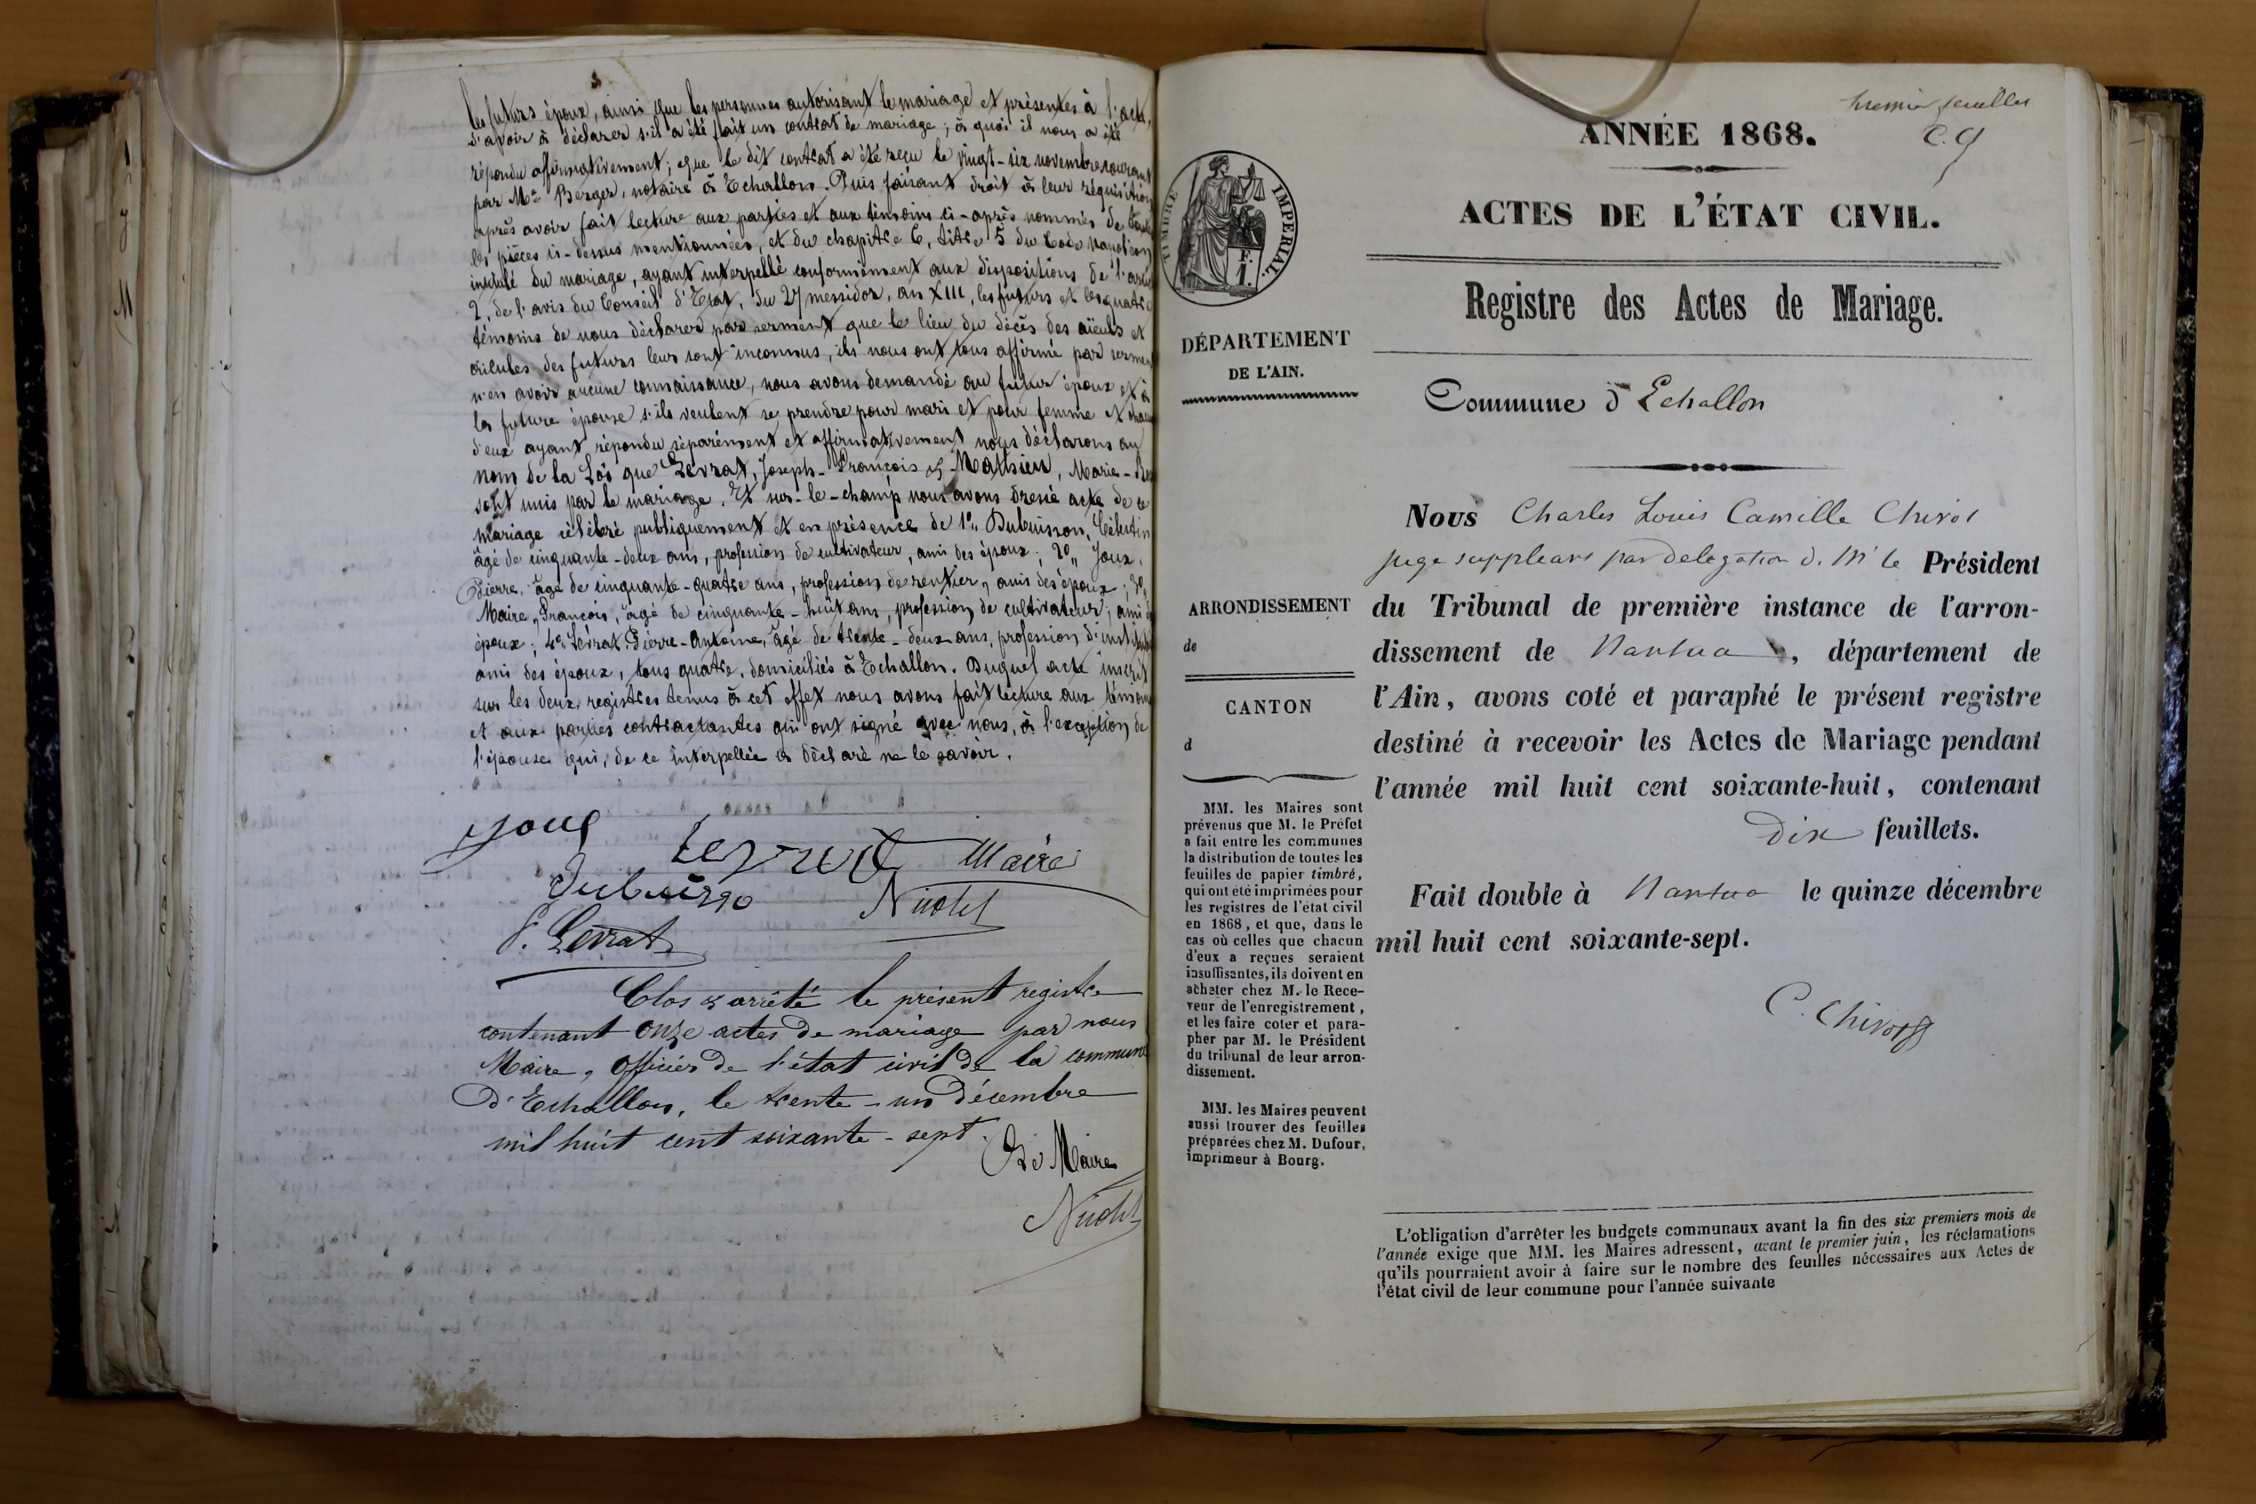 les futurs époux, ainsi que les personnes autorisant le mariage et présentes à l'acte,
d'avoir à déclarer s'il a été fait un contrat de mariage ; à quoi il nous a été
répondu affirmativement ; que le dit contrat a été reçu le vingt-six novembre courant
par Me Berger, notaire à Echallon. Puis faisant droit à leur réquisition
après avoir fait lecture aux parties et aux témoins ci-après nommés de
les pièces ci-dessus mentionnées, et du chapitre 6, titre 5 du Code Napoléon
intitulé du mariage, ayant interpellé conformément aux dispositions de l'
2, de l'avis du Conseil d'Etat, du 27 messidor, an XIII, les futurs et les quatre
témoins de nous déclarer par serment que le lieu du décès des aïeuls et
aïeules des futurs leur sont inconnus, ils nous ont tous affirmé par
n'en avoir aucune connaissance, nous avons demandé au futur époux et à
la future épouse s'ils veulent se prendre pour mari et pour femme et
d'eux ayant répondu séparément et affirmativement nous déclarons au
nom de la Loi que Levrat, Joseph-François & Mathieu, Marie-
sont unis par le mariage. Et sur-le-champ nous avons dressé acte de ce
mariage célébré publiquement et en présence de 1° Dubuisson, Célestin
âgé de cinquante-deux ans, profession de cultivateur, ami des époux ; 2° Joux,
Pierre, âgé de cinquante-quatre ans, profession de rentier, ami des époux ; 3°
Maire, François, âgé de cinquante-huit ans, profession de cultivateur, ami
époux ; 4° Levrat Pierre-Antoine, âgé de trente-deux ans, profession d'
ami des époux, tous quatre, domiciliés à Echallon. Duquel acte inscrit
sur les deux registres tenus à cet effet nous avons fait lecture aux témoins
et aux parties contractantes qui ont signé avec nous, à l'exception de
l'épouse qui, de ce interpellée a déclaré ne le savoir.
Joux
Levrat Maire
Nicolet
P. Levrat
Clos & arrêté le présent registre
contenant onze actes de mariage par nous
Maire, officier de l'état civil de la commune
d'Echallon, le trente-un décembre
mil huit cent soixante-sept.
Le Maire
Nicolet
premier feuillet
ANNÉE 1868.
ACTES DE L'ÉTAT CIVIL.
Registre des Actes de Mariage.
TIMBRE IMPÉRIAL.
1 F.
DÉPARTEMENT
DE L'AIN.
ARRONDISSEMENT
de
CANTON
d
MM. les Maires sont
prévenus que M. le Préfet
a fait entre les communes
la distribution de toutes les
feuilles de papier timbré,
qui ont été imprimées pour
les registres de l'état civil
en 1868, et que, dans le
cas où celles que chacun
d'eux a reçues seraient
insuffisantes, ils doivent en
acheter chez M. le Rece-
veur de l'enregistrement,
et les faire coter et para-
pher par M. le Président
du tribunal de leur arron-
dissement.
MM. les Maires peuvent
aussi trouver des feuilles
préparées chez M. Dufour,
imprimeur à Bourg.
Commune d'Echallon
Nous Charles Louis Camille Chivot
juge suppléant par delegation d. Mr le Président
du Tribunal de première instance de l'arron-
dissement de Nantua, département de
l'Ain, avons coté et paraphé le présent registre
destiné à recevoir les Actes de Mariage pendant
l'année mil huit cent soixante-huit, contenant
dix feuillets.
Fait double à Nantua le quinze décembre
mil huit cent soixante-sept.
C. Chivot
L'obligation d'arrêter les budgets communaux avant la fin des six premiers mois de
l'année exige que MM. les Maires adressent, avant le premier juin, les réclamations
qu'ils pourraient avoir à faire sur le nombre des feuilles nécessaires aux Actes de
l'état civil de leur commune pour l'année suivante